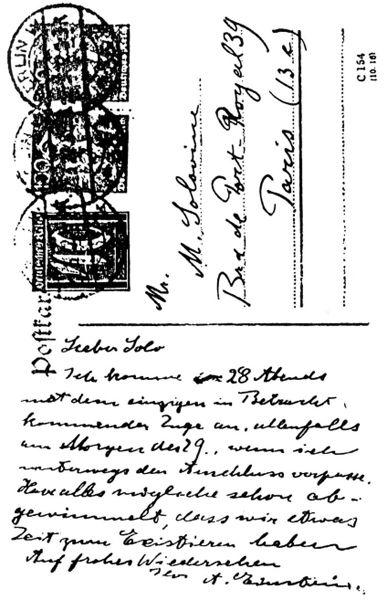 Postkar
BERLIN
40
Mr.
M. Solovine
Rue de Port-Royal 39
Paris (13e)
C 154
Lieber Solo
Ich komme 28 Abends
mit dem einzigen in Betracht
kommenden Zuge an, allenfalls
am Morgen des 29., wenn ich
unterwegs den Anschluss verpasse.
Habe alles mögliche schon ab-
gewimmelt, dass wir etwas
Zeit zum Existieren haben
Auf frohes Wiedersehen
A. Einstein.